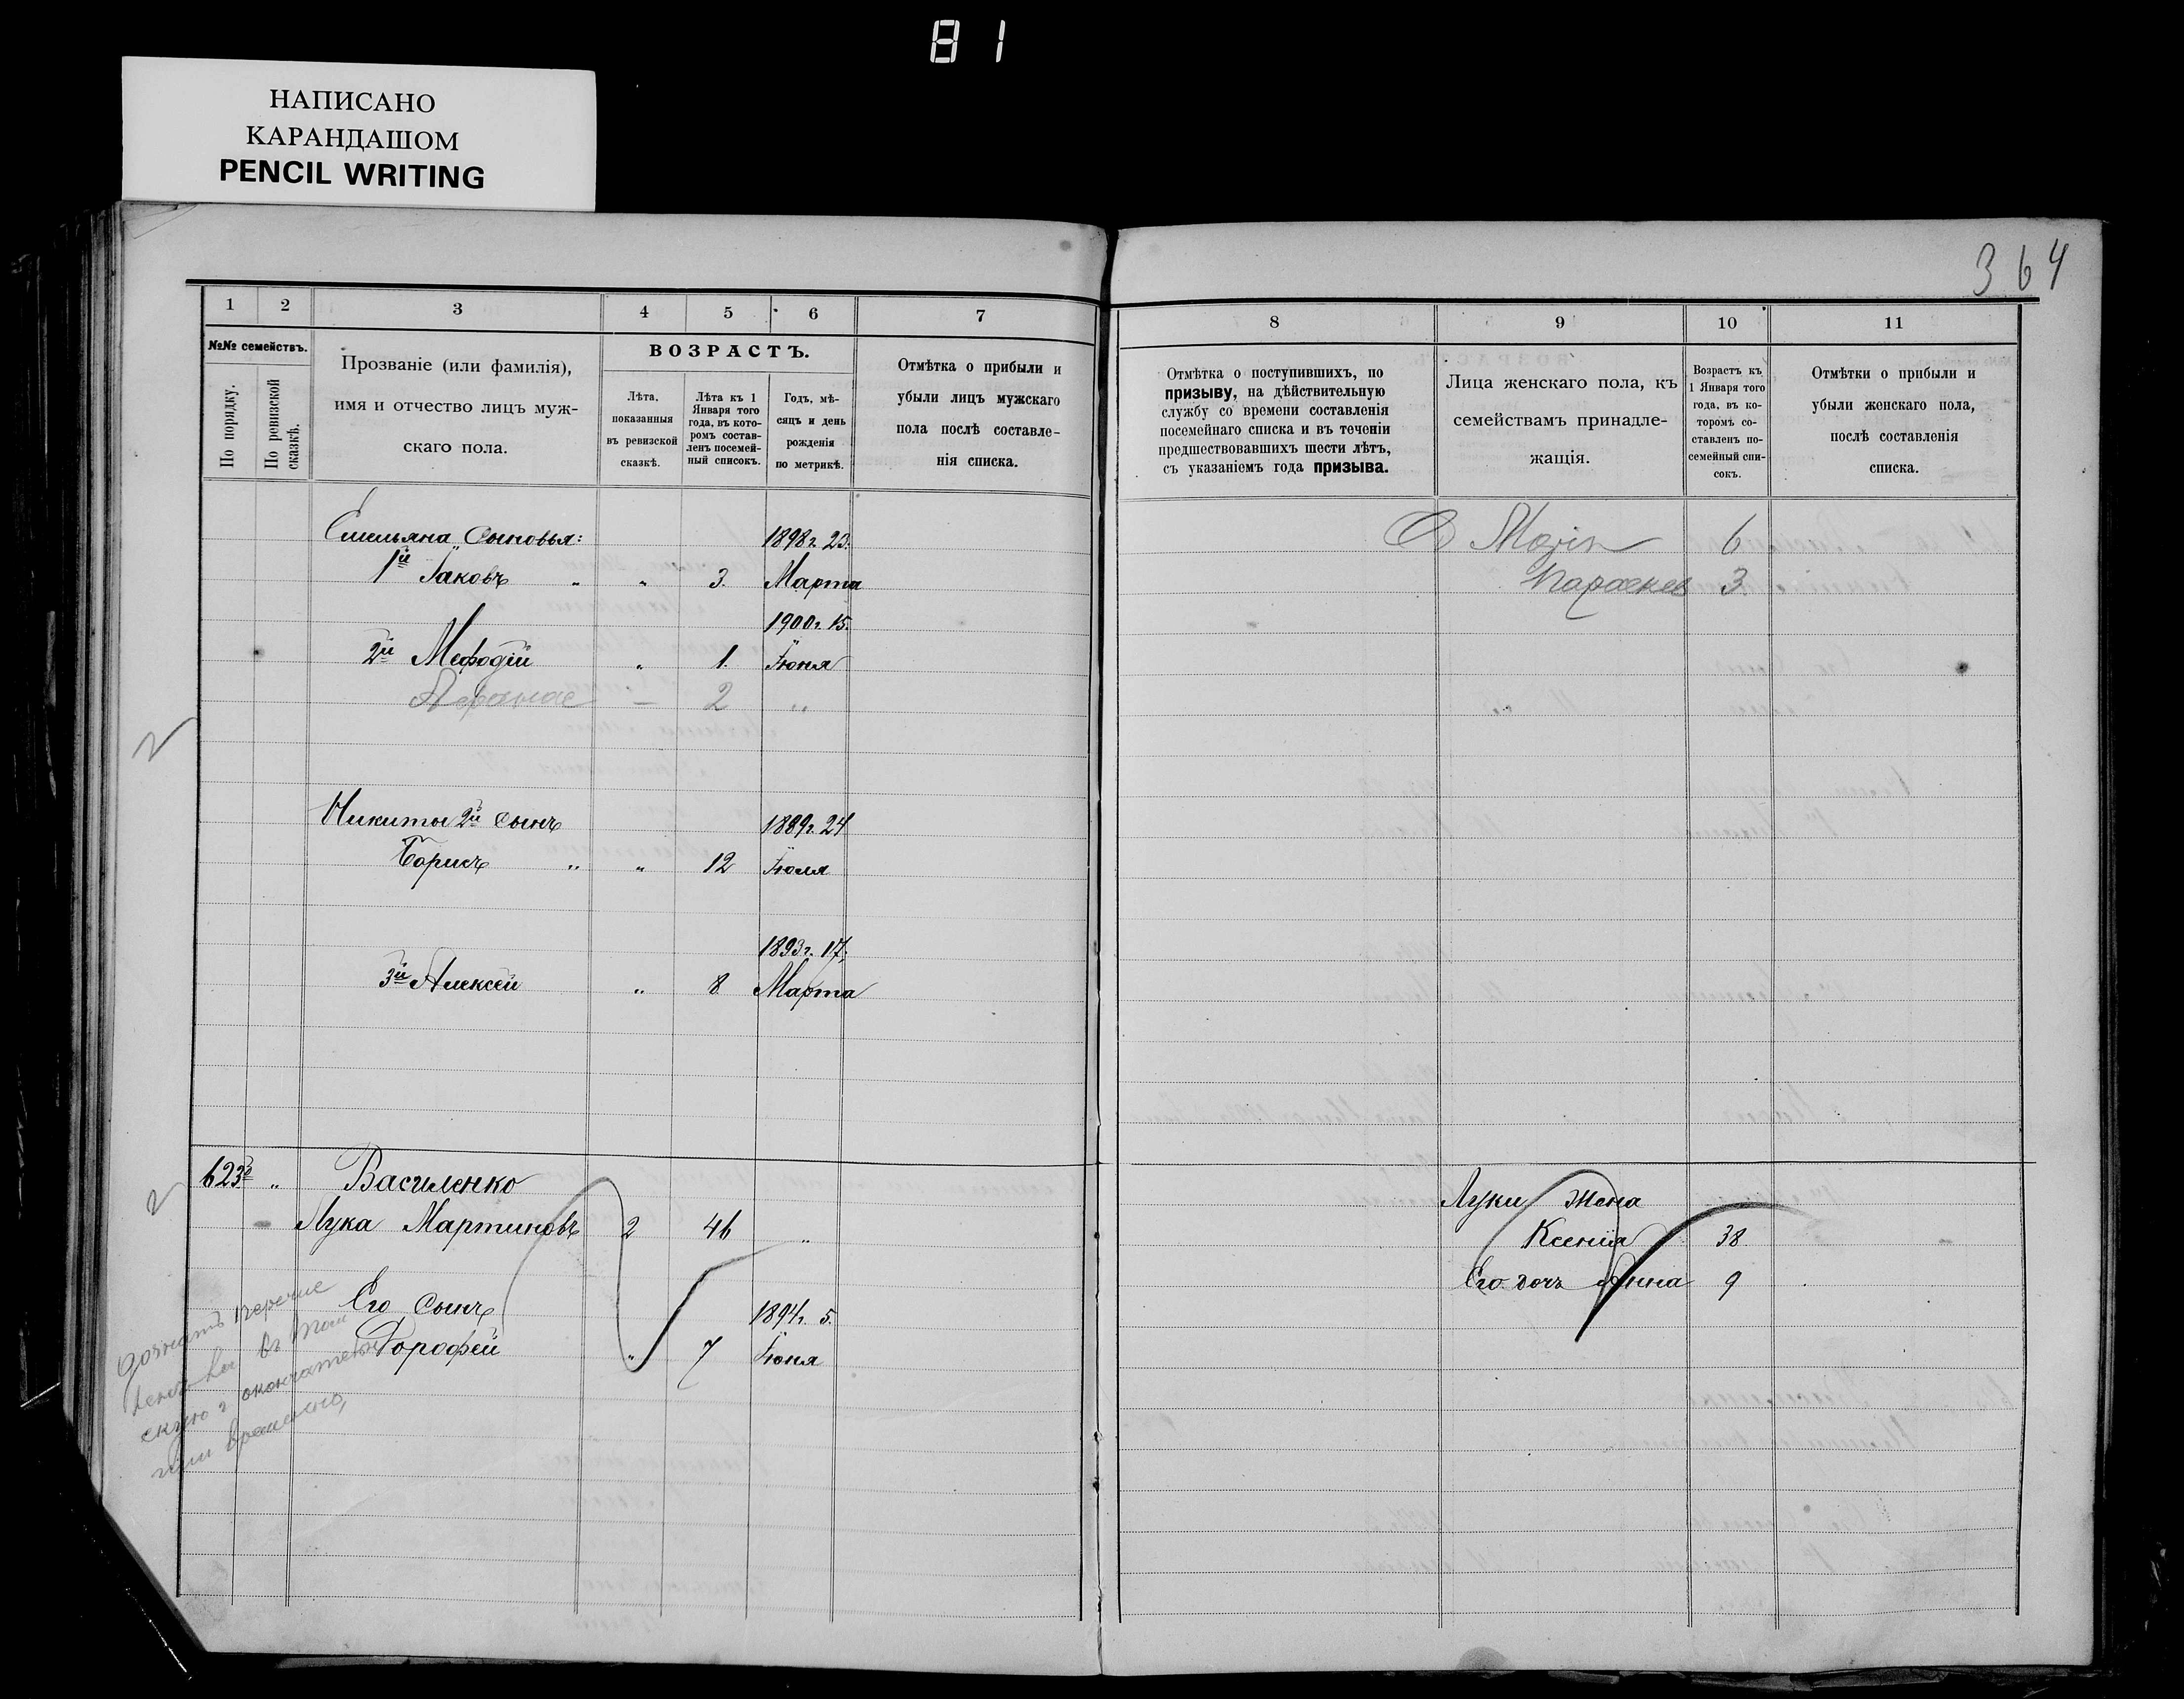 81
НАПИСАНО
КАРАНДАШОМ
PENCIL WRITING
364
1 2 3 4 5 6 7 8 9 10 11
№№ семействъ.
По порядку.
По ревизской сказкѣ.
Прозваніе (или фамилія),
имя и отчество лицъ муж-
скаго пола.
ВОЗРАСТЪ.
Лѣта,
показанныя
въ ревизской
сказкѣ.
Лѣта къ 1
Января того
года, въ кото-
ромъ состав-
ленъ посемей-
ный списокъ.
Годъ, мѣ-
сяцъ и день
рожденія
по метрикѣ.
Отмѣтка о прибыли и
убыли лицъ мужскаго
пола послѣ составле-
нія списка.
Отмѣтка о поступившихъ, по
призыву, на дѣйствительную
службу со времени составленія
посемейнаго списка и въ теченіи
предшествовавшихъ шести лѣтъ,
съ указаніемъ года призыва.
Лица женскаго пола, къ
семействамъ принадле-
жащія.
Возрастъ къ
1 Января того
года, въ ко-
торомъ со-
ставленъ по-
семейный спи-
сокъ.
Отмѣтки о прибыли и
убыли женскаго пола,
послѣ составленія
списка.
Емельяна сыновья: 1898г. 23.
1й Іаковъ " " 3. Марта
1900г. 15.
2й Мефодій " 1. Іюня
Афанас — 2 "
6
Параскев 3
Никиты 2й сынъ 1889г. 24
Борисъ " " 12 Іюля
1893г. 17.
3й Алексѣй " 8 Марта
623й " Василенко
Лука Мартиновъ 2 46 "
Его сынъ 1894г. 5.
Дорофей " 7 Іюня
Луки жена
Ксенія 38
Его дочь Анна 9
въ
окончательно
или временно,